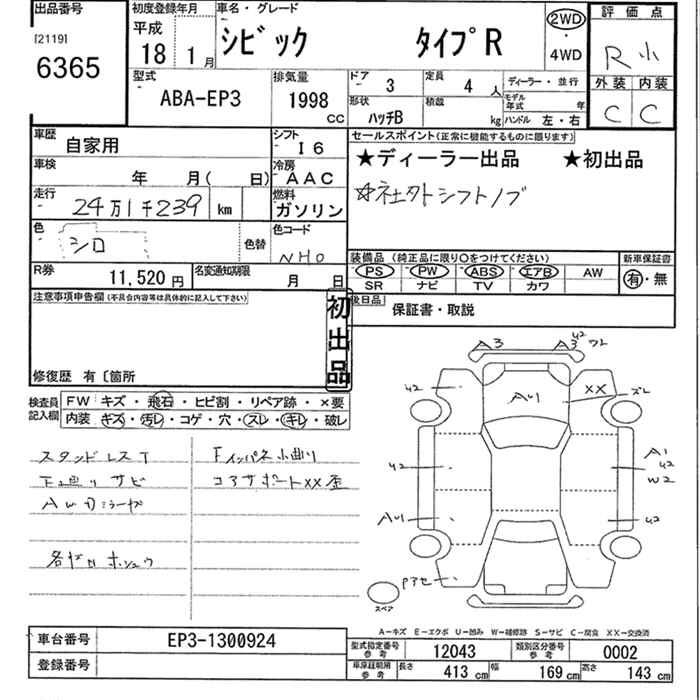 出品番号
[2119]
6365
初度登録年月
平成
18 1 月
車名・グレード
シビック タイプR
2WD
・
4WD
評価点
R小
外装 内装
C C
型式
ABA-EP3
排気量
1998
CC
ドア
3
定員
4 人
ディーラー・並行
形状
ハッチB
積載
kg
モデル年式 年
ハンドル 左・右
車歴
自家用
シフト
I6
車検
年 月( 日)
冷房
AAC
走行
24万1千239 km
燃料
ガソリン
色
シロ
色替
色コード
NH0
R券
11,520 円
名変通知期限
月 日
セールスポイント(正常に機能するものに限ります)
★ディーラー出品 ★初出品
シフトノブ
装備品 (純正品に限り○をつけてください)
PS ・ PW ・ ABS ・ エアB ・ AW
SR ナビ TV カワ
新車保証書
有・無
後日品
保証書・取説
注意事項申告欄(不具合内容等は具体的に記入して下さい)
初出品
修復歴 有〔箇所
検査員記入欄
FW キズ・飛石・ヒビ割・リペア跡・×要
内装 キズ・汚レ・コゲ・穴・スレ・キレ・破レ
下廻りサビ
コアサポートXX歪
A3
A3
U2
AU1
XX
ズレ
U2
U2
AU1
A1
U2
W2
U2
スペア
A-キズ E-エクボ U-凹み W-補修跡 S-サビ C-腐食 XX-交換済
車台番号
EP3-1300924
登録番号
型式指定番号 参考
12043
類別区分番号 参考
0002
車庫証明用 参考
長さ 413 cm 幅 169 cm 高さ 143 cm